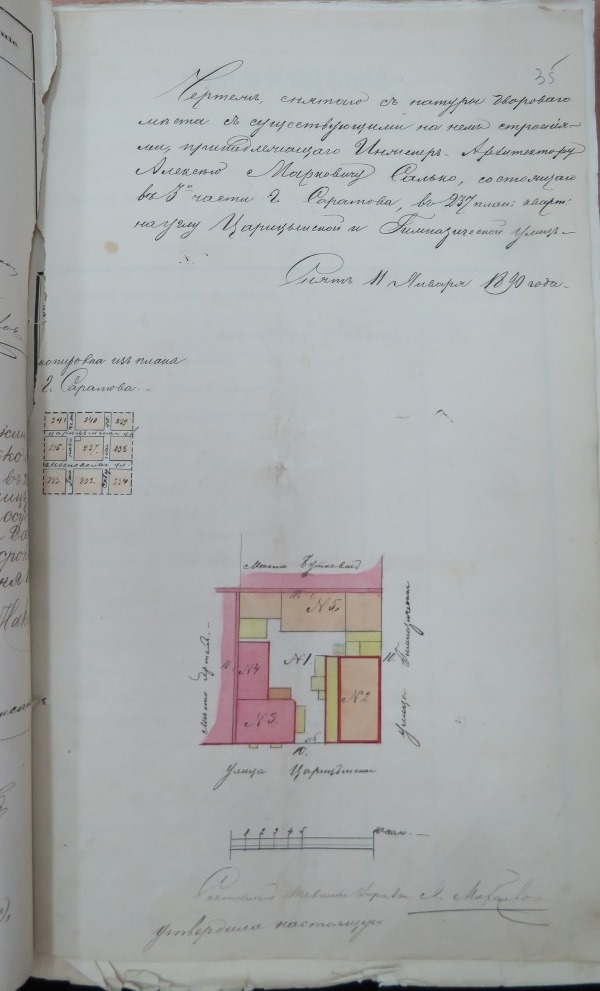 35
Чертежъ, снятого съ натуры двороваго
мѣста съ существующими на немъ строенія-
ми, принадлежащаго Инженеръ-Архитектору
Алексѣю Марковичу Салько, состоящаго
въ 3й части г. Саратова, въ 237 план: кварт:
на углу Царицынской и Гимназической улицъ.
Снятъ 11 Января 1890 года.
копировка изъ плана
г. Саратова.
241 240
237
232
Мѣсто
№ 5.
№ 1.
№ 4
№ 2
№ 3.
10.
10.
Мѣсто
улица Гимназическая
улица Царицынская
1 2 3 4 5
утвердила настоящую